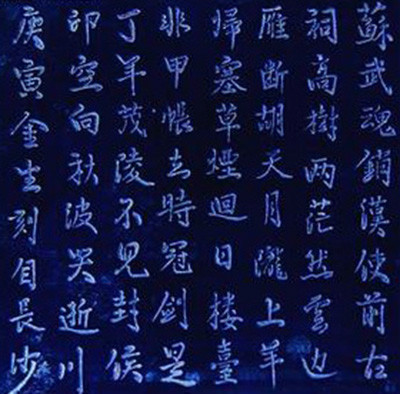 蘇武魂銷漢使前古
祠高樹两茫然雲边
雁断胡天月隴上羊
歸塞草煙迴日楼臺
非甲帳去時冠剑是
丁年茂陵不見封侯
印空向秋波哭逝川
庚寅金生刻自長沙